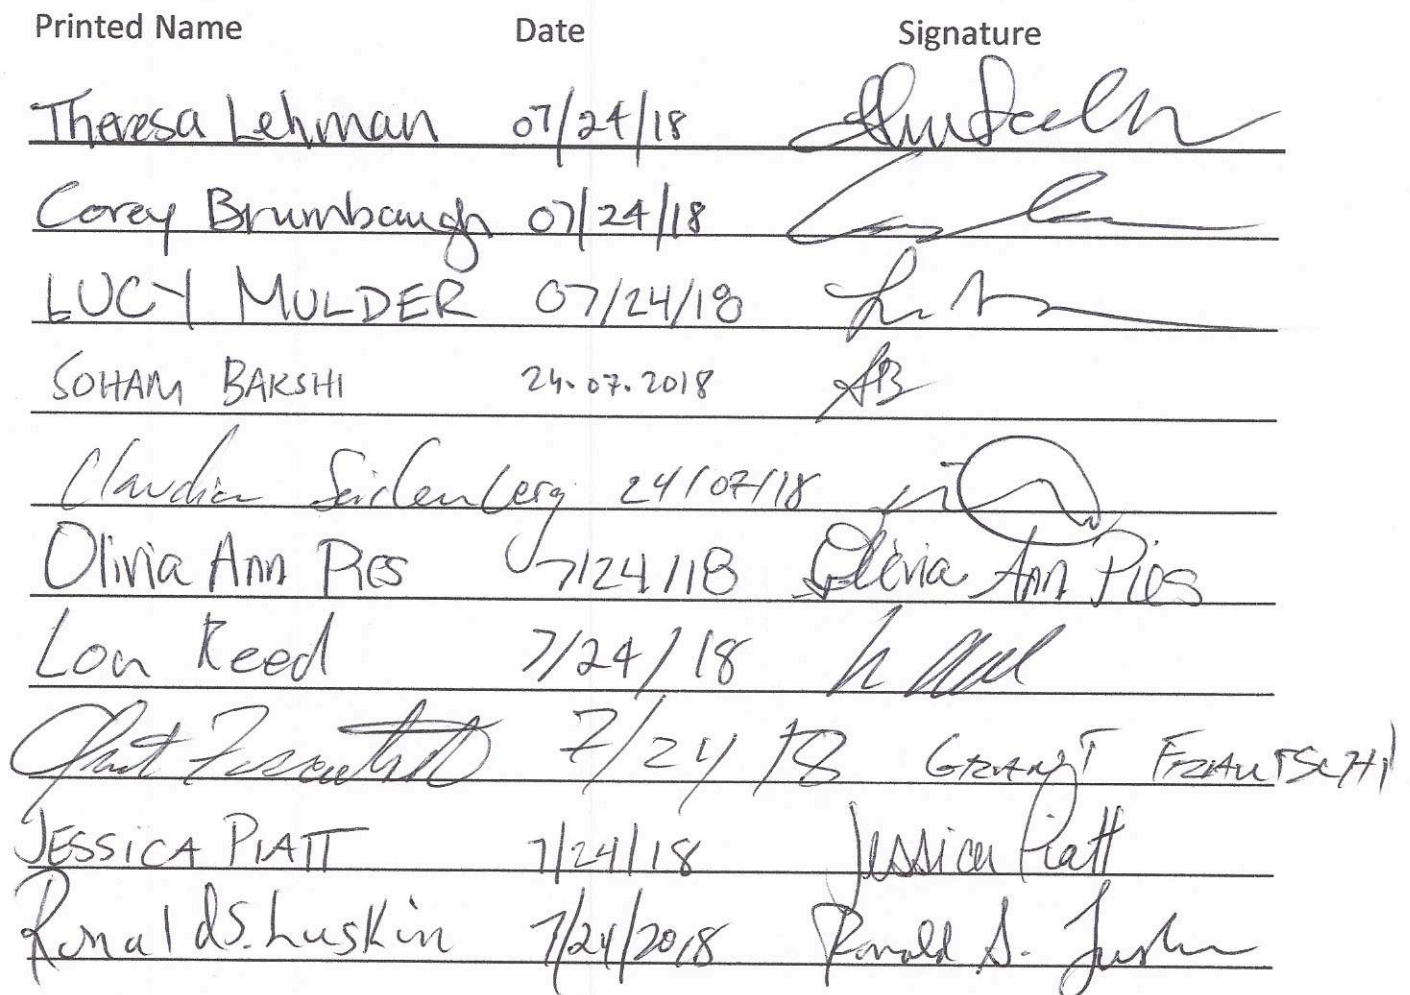 Printed Name Date Signature
Theresa Lehman 07/24/18
Corey Brumbaugh 07/24/18
LUCY MULDER 07/24/18
SOHAM BAKSHI 24.07.2018 SB
Claudia Seidenberg 24/07/18
Olivia Ann Pies 7/24/18 Olivia Ann Pies
Lon Reed 7/24/18
7/24/18 GRANT FRAUTSCHI
JESSICA PIATT 7/24/18 Jessica Piatt
Ronald S. Luskin 7/24/2018 Ronald S. Luskin